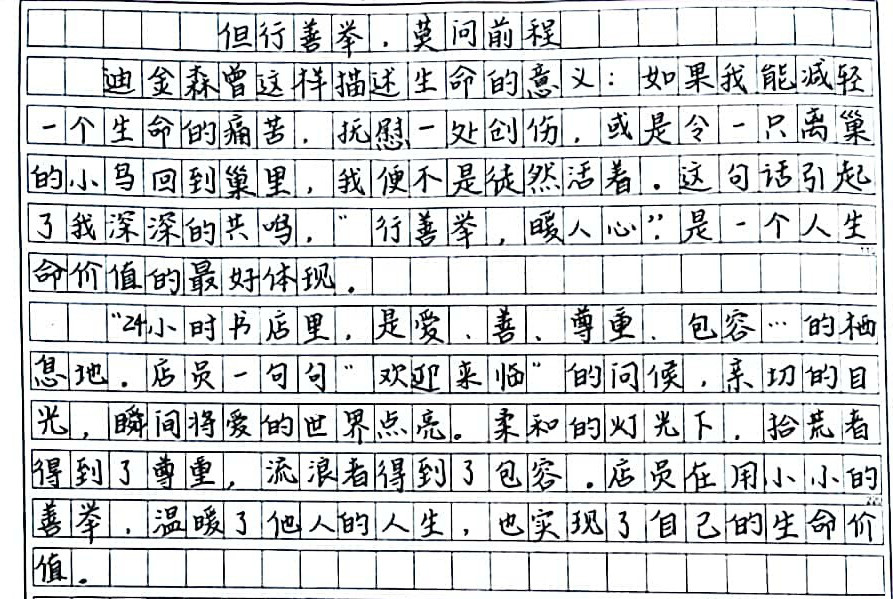 但行善举，莫问前程
迪金森曾这样描述生命的意义：如果我能减轻
一个生命的痛苦，抚慰一处创伤，或是令一只离巢
的小鸟回到巢里，我便不是徒然活着。这句话引起
了我深深的共鸣，“行善举，暖人心”是一个人生
命价值的最好体现。
“24小时书店里，是爱、善、尊重、包容…的栖
息地。店员一句句“欢迎来临”的问候，亲切的目
光，瞬间将爱的世界点亮。柔和的灯光下，拾荒者
得到了尊重，流浪者得到了包容。店员在用小小的
善举，温暖了他人的人生，也实现了自己的生命价
值。